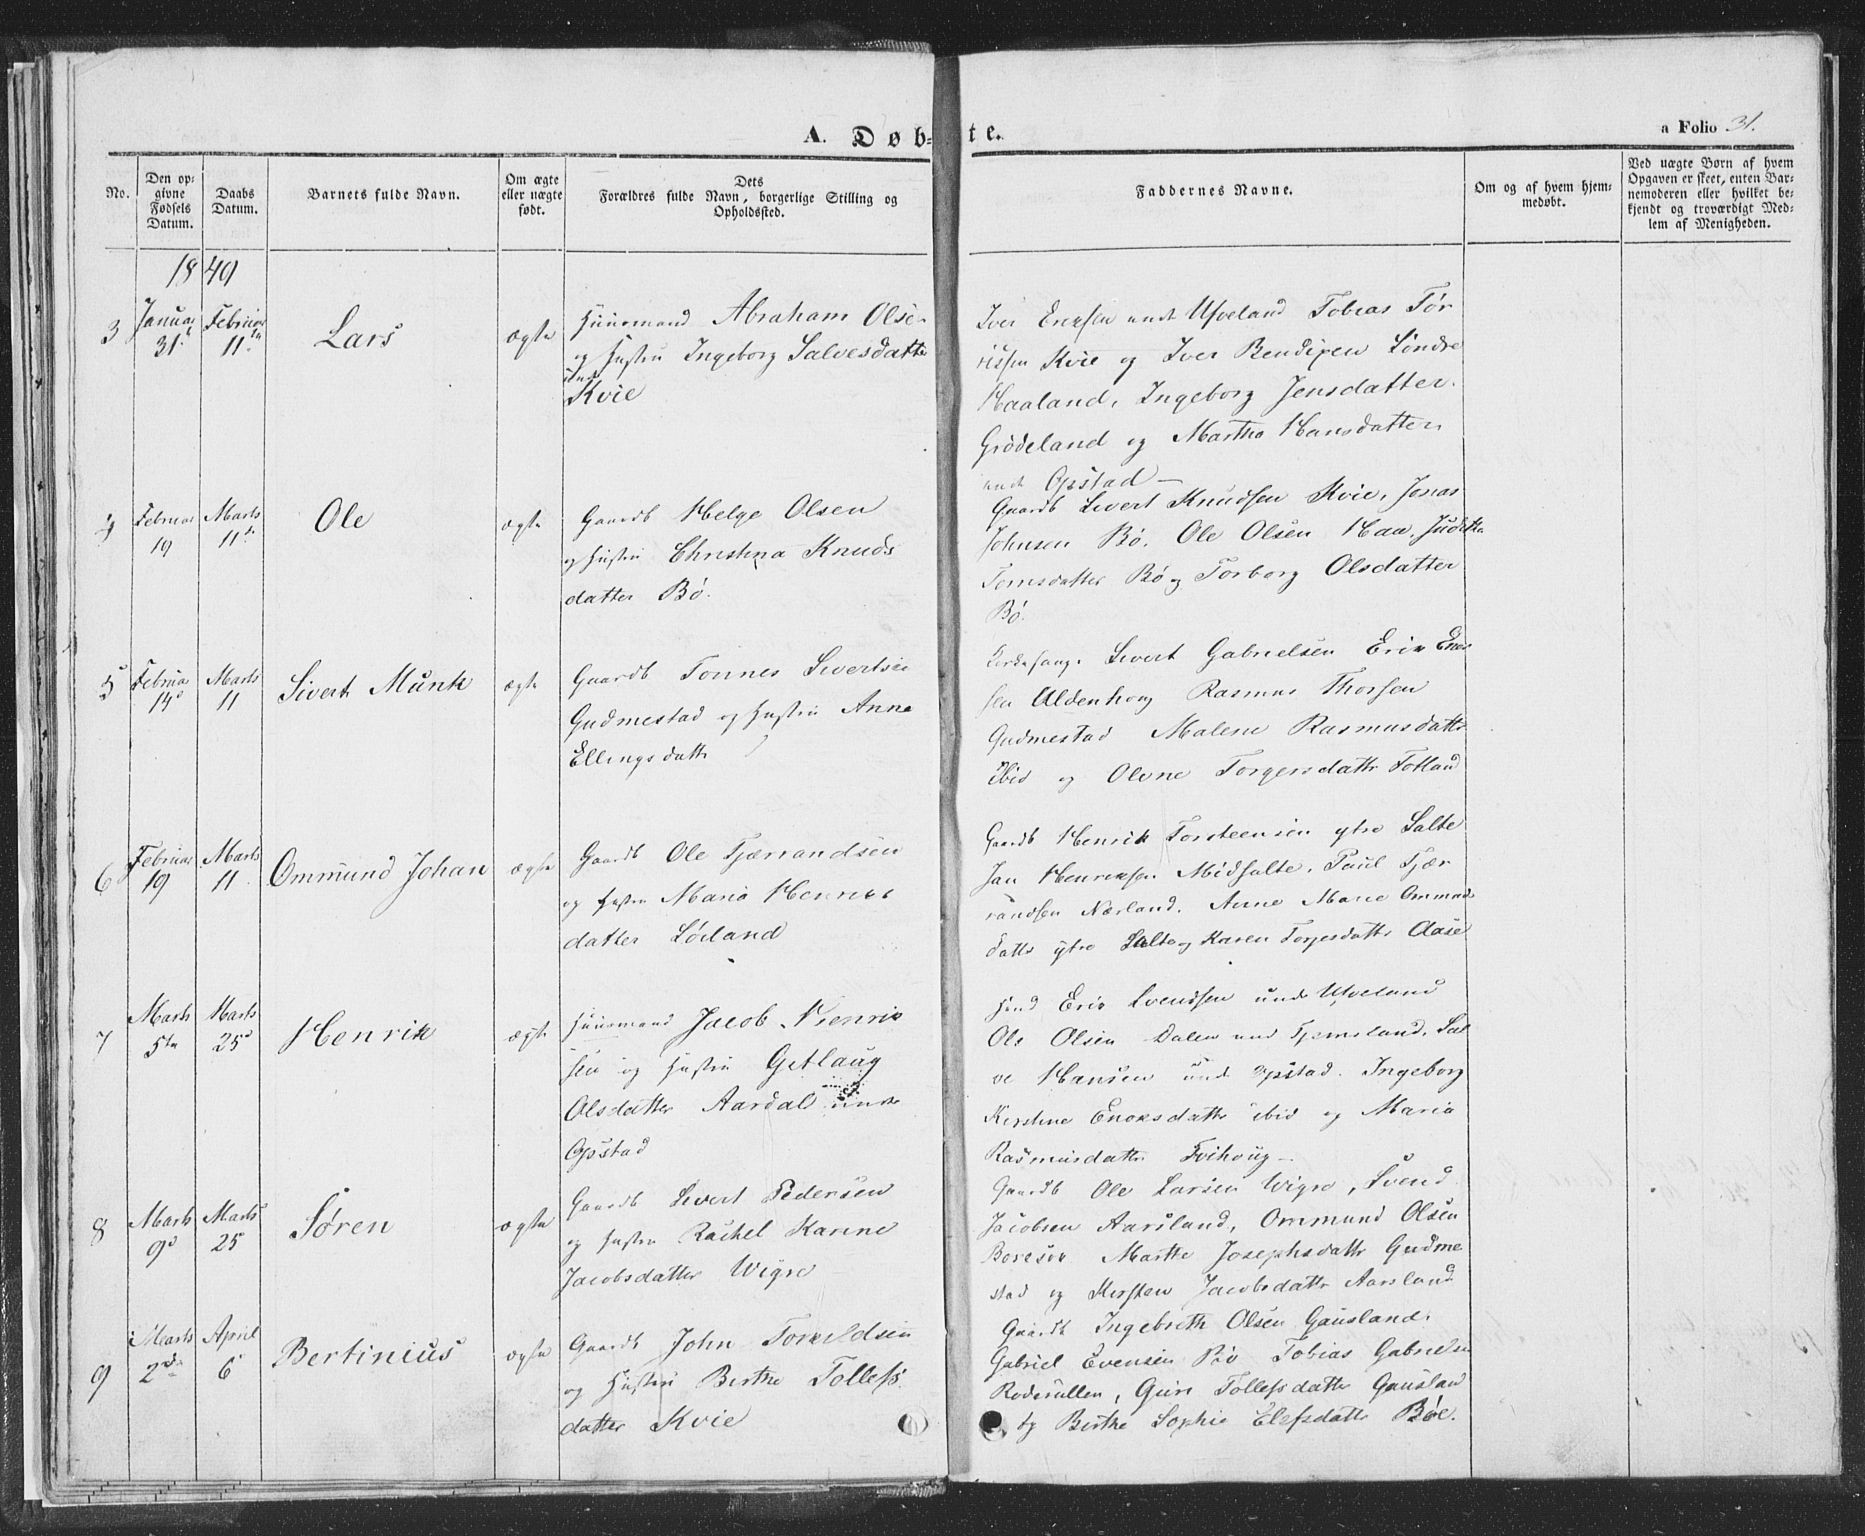 A. Døb-
te.
a Folio 31.
No.
Den op-
givne
Fødsels
Datum.
Daabs
Datum.
Barnets fulde Navn.
Om ægte
eller uægte
født.
Dets
Forældres fulde Navn, borgerlige Stilling og
Opholdssted.
Faddernes Navne.
Om og af hvem hjem-
medøbt.
Ved uægte Børn af hvem
Opgaven er skeet, enten Bar-
nemoderen eller hvilket be-
kjendt og troværdigt Med-
lem af Menigheden.
1849
3
Januar
31
Februar
11
Lars
ægte
Huusmand Abraham Olsen
og Hustru Ingeborg Salvesdatter
Kvie
Iver Enersen und Ueland Tobias Tør
rissen Kvie og Iver Bendixen Søndre
Haaland, Ingeborg Jensdatter
Grødeland og Martha Hansdatter
und Opstad
4
Februar
19
Marts
11
Ole
ægte
Gaardb Helge Olsen
og Hustru Christina Knuds
datter Bø.
Gaardb Sivert Knudsen Kvie, Jonas
Johnsen Bø, Ole Olsen Haa, Judithe
Tomsdatter Bø og Torborg Olsdatter
Bø.
5
Februar
14
Marts
11
Sivert Munk
ægte
Gaardb Tonnes Sivertsen
Gudmestad og Hustru Anne
Ellingsdatter
Sivert Gabrielsen Erik Eriks
sen Aldenhoug Rasmus Thorsen
Gudmestad Malene Rasmusdatter
ibid og Olene Torgersdatter Totland
6
Februar
19
Marts
11
Ommund Johan
ægte
Gaardb Ole Tjærrandsen
og Hustru Maria Henriks
datter Lørland
Gaardb Henrik Torsteensen ytre Salte
Jan Henriksen Midsalte, Paul Tjær
randsen Nærland, Anne Marie Ommunds
datter ytre Salte og Karen Torgersdatter Aase
7
Marts
5te
Marts
25
Henrik
ægte
Huusmand Jacob Henrik
sen og Hustru Getlaug
Olsdatter Aardal under
Opstad
Erik Svendsen under Ueland
Ole Olsen Dalen und Tjemsland, Sal
ve Hansen und Opstad. Ingeborg
Kirstine Enoksdatter ibid og Maria
Rasmusdatter Tvihoug
8
Marts
9
Marts
25
Søren
ægte
Gaardb Sivert Pedersen
og Hustru Rachel Karine
Jacobsdatter Wigre
Gaardb Ole Larsen Wigre, Svend
Jacobsen Aarsland, Ommund Olsen
Martha Josephsdatter Gudme
stad og Kirsten Jacobsdatter Aarsland
9
Marts
2
April
6
Bertinius
ægte
Gaardb John Torkildsen
og Hustru Berthe Tollefs
datter Kvie
Gaardb Ingebreth Olsen Gausland
Gabriel Evensen Bøe Tobias Gabrielsen
Guri Tollefsdatter Gausland
og Berthe Sophie Elefsdatter Bøe.